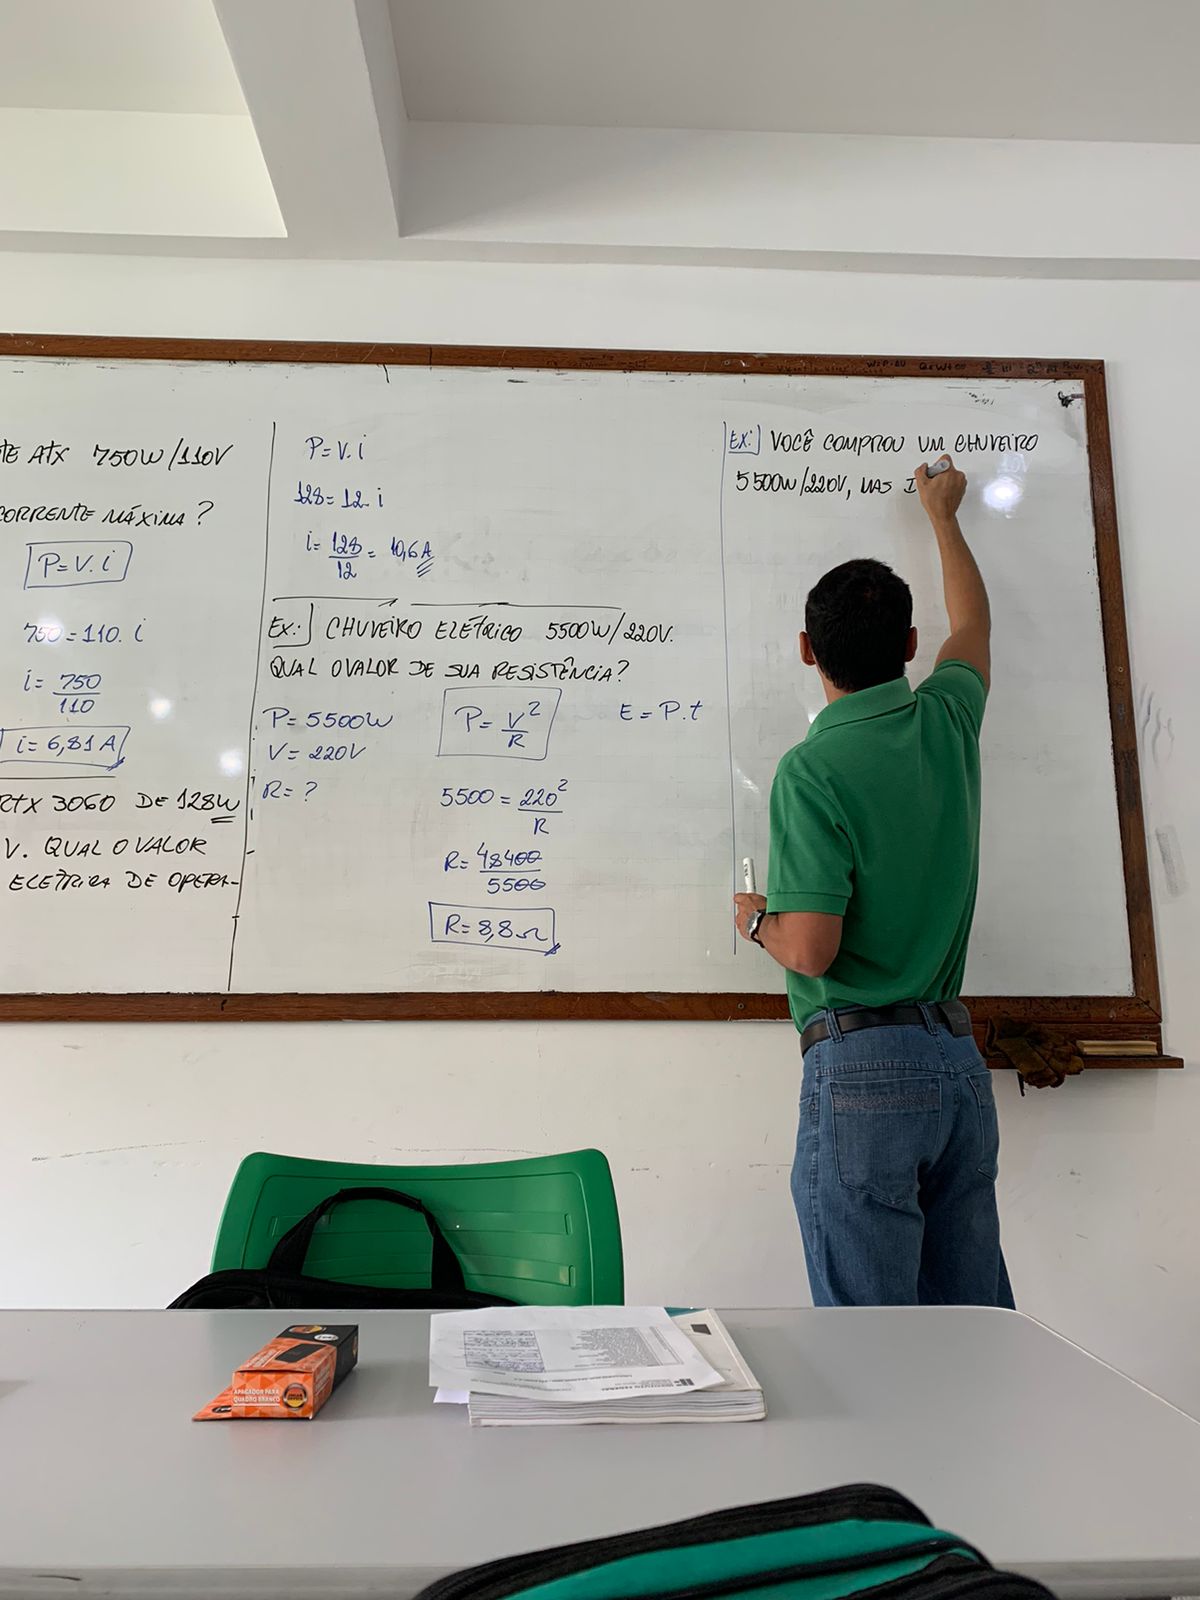 TE ATX 750W/110V
CORRENTE MÁXIMA?
P=V.i
750=110.i
i=750
110
i=6,81A
RTX 3060 DE 128W
V. QUAL O VALOR
ELÉTRICA DE OPERA-
P=V.i
128=12.i
i=128=10,6A
12
EX: CHUVEIRO ELÉTRICO 5500W/220V.
QUAL O VALOR DE SUA RESISTÊNCIA?
P=5500W
V=220V
R=?
P=V²
R
E=P.t
5500=220²
R
R=48400
5500
R=8,8Ω
EX: VOCÊ COMPROU UM CHUVEIRO
5500W/220V, MAS
APAGADOR PARA
QUADRO BRANCO